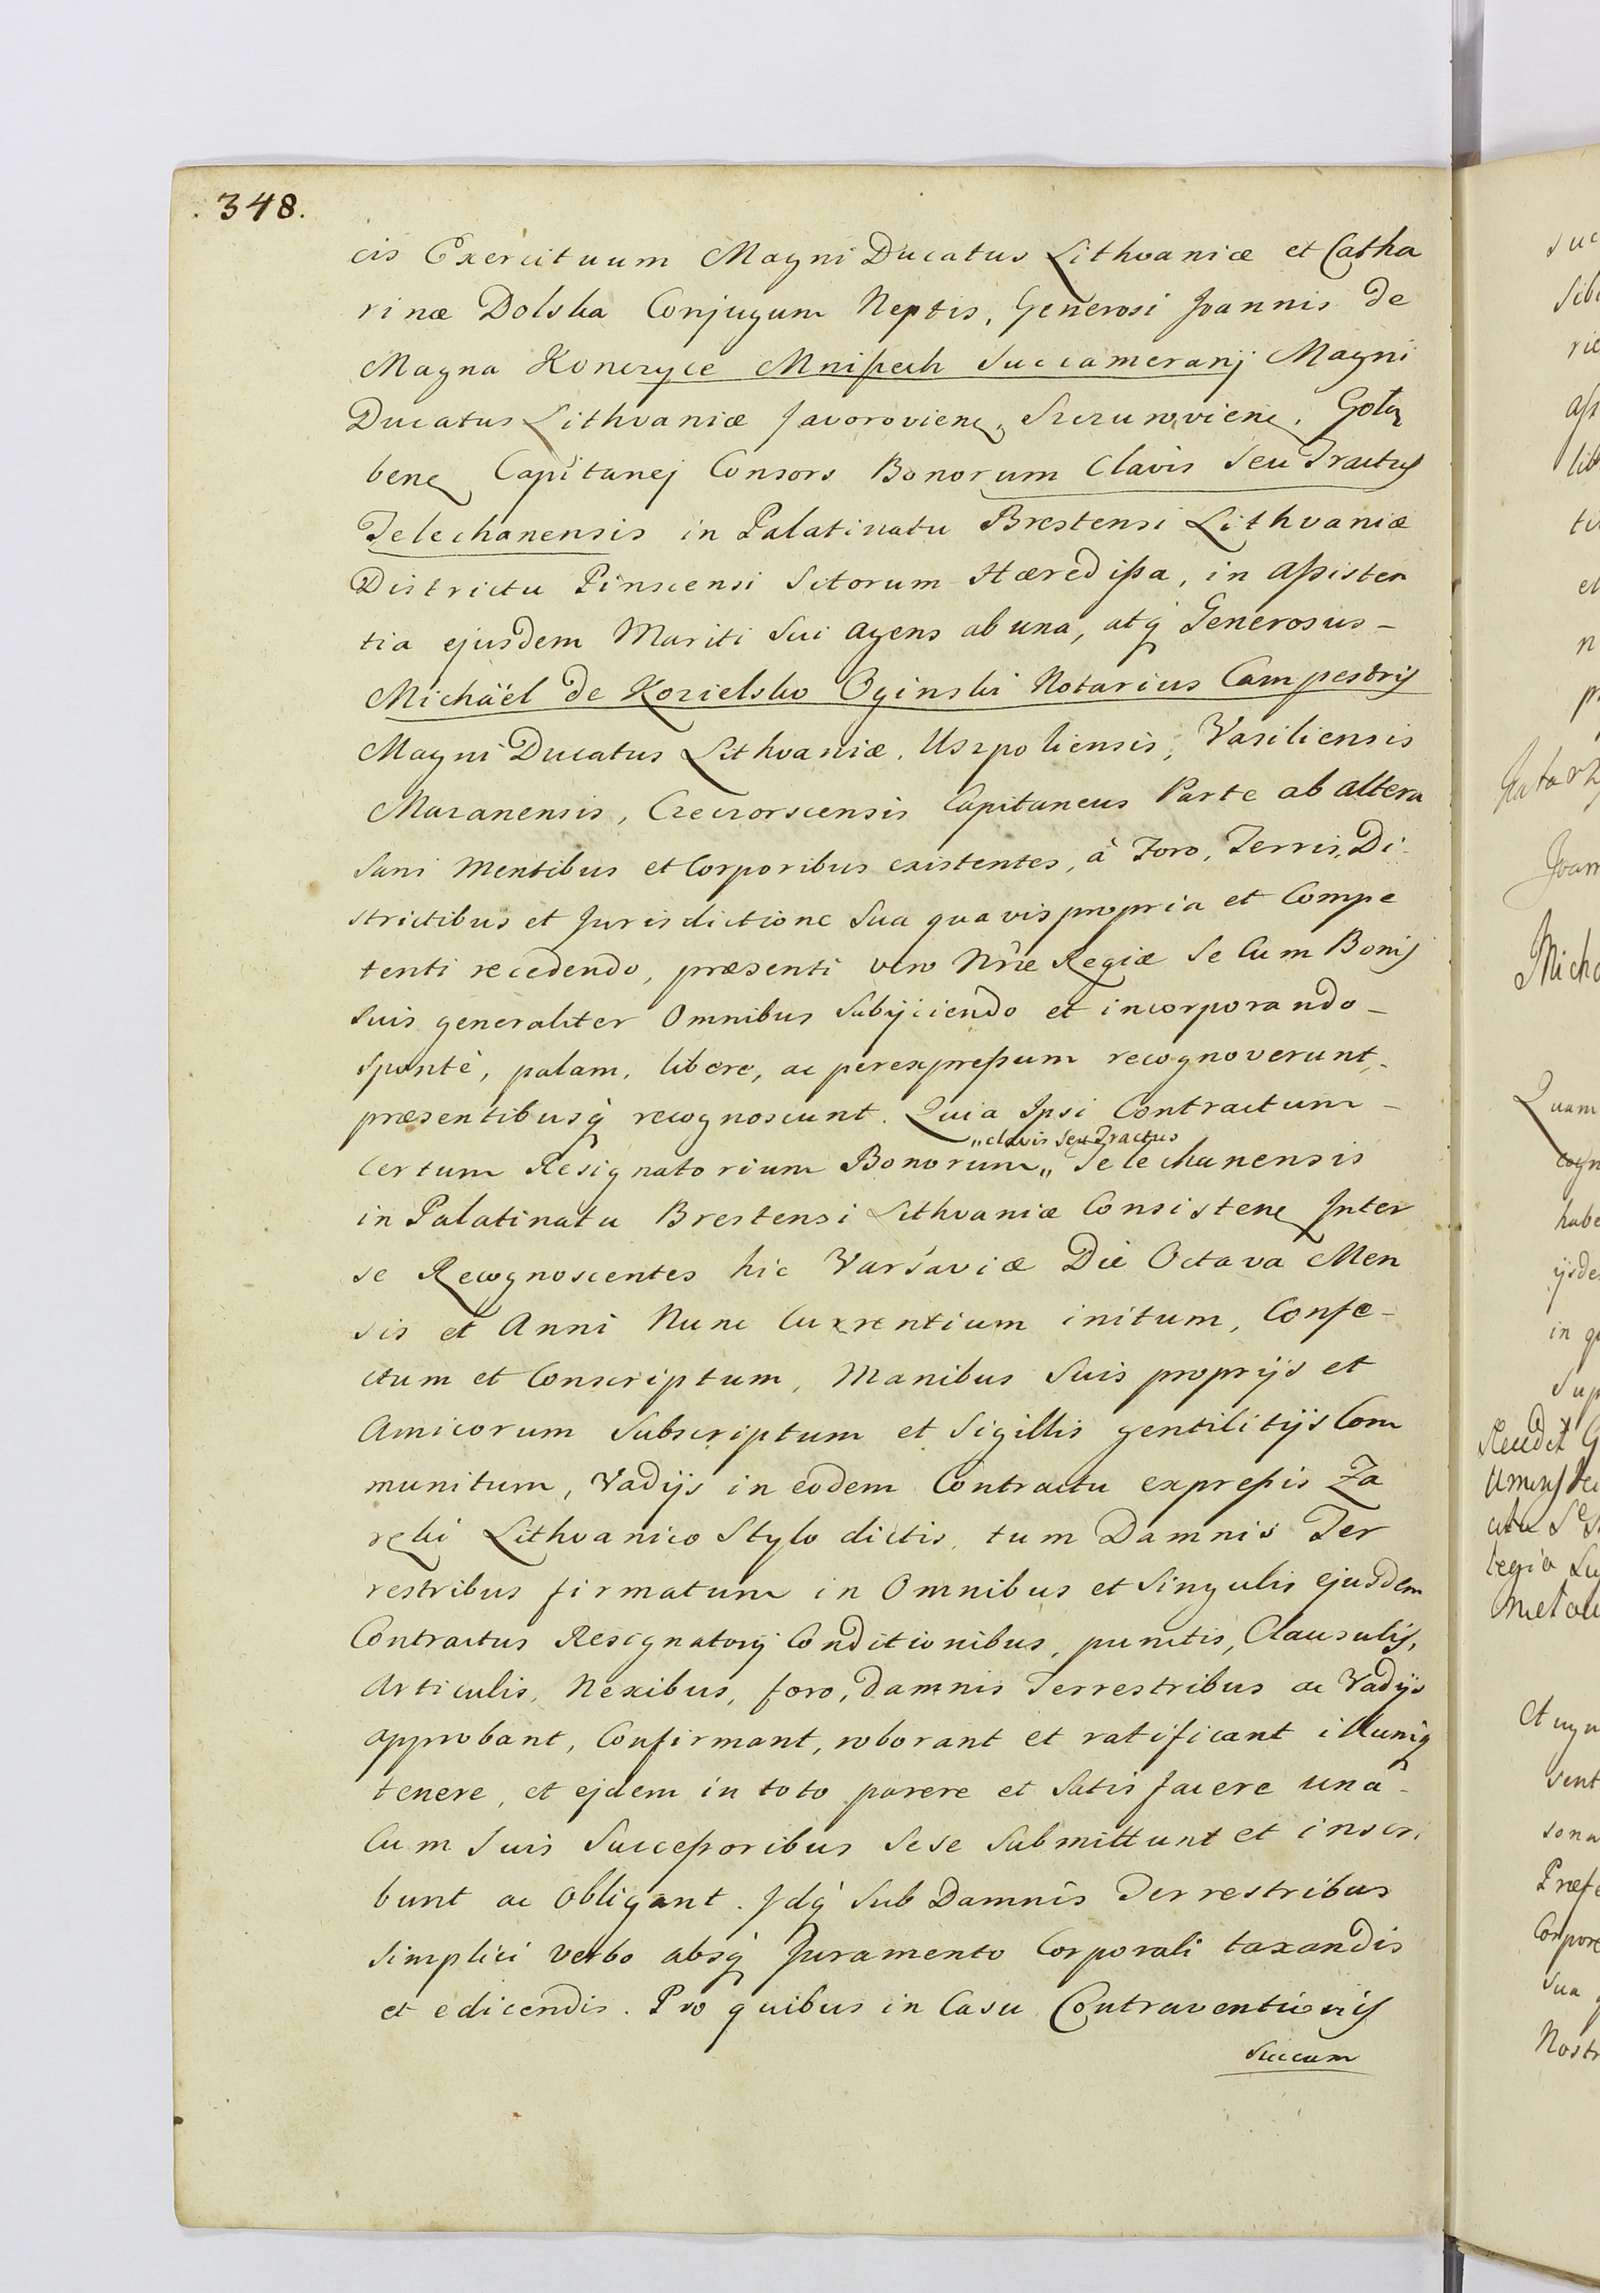 348.
cis Exercituum Magni Ducatus Lithvaniæ et Catha
rinæ Dolska Conjugum Neptis, Generosi Joannis de
Magna Konczyce Mniszech Succameranj Magni
Ducatus Lithvaniæ Javorovien, Szczurovien, Gołę
ben Capitanej Consors Bonorum Clavis Seu Tractus
Telechanensis in Palatinatu Brestensi Lithvaniæ
Districtu Pinscensi Sitorum Hæredissa, in Assisten
tia ejusdem Mariti Sui agens ab una, atq Generosus –
Michäel de Kozielsko Oginski Notarius Campestris
Magni Ducatus Lithvaniæ, Uszpoliensis, Vasiliensis
Mazanensis, Czeczorscensis Capitaneus Parte ab altera
Sani Mentibus et Corporibus existentes, à Foro, Terris, Di-
strictibus et Jurisdictione Sua quavis propria et Compe
tenti recedendo, præsenti vero Nr̃æ Regiæ Se Cum Bonis
Suis generaliter Omnibus Subijciendo et incorporando –
Spontè, palam, libere, ac per expressum recognoverunt,
præsentibusq recognoscunt. Quia Ipsi Contractum –
„clavis seu Tractus
Certum Resignatorium Bonorum„ Telechanensis
in Palatinatu Brestensi Lithvaniæ Consisten Inter
se Recognoscentes hic Varsaviæ Die Octava Men
sis et Anni Nunc Currentium initum, Confe-
ctum et Conscriptum, Manibus Suis proprijs et
Amicorum Subscriptum et Sigillis gentilitijs Com
munitum, Vadijs in eodem Contractu expressis Za
ręki Lithvanico Stylo dictis, tum Damnis Ter
restribus firmatum in Omnibus et Singulis ejusdem
Contractus Resignatorij Conditionibus, punctis, Clausulis,
Articulis, Nexibus, foro, Damnis Terrestribus ac Vadijs
approbant, Confirmant, roborant et ratificant illumq
tenere, et ejdem in toto parere et Satisfacere una –
Cum Suis Successoribus Sese Submittunt et inscri
bunt ac Obligant. Idq Sub Damnis Terrestribus
Simplici verbo absq Juramento Corporali taxandis
et edicendis. Pro quibus in Casu Contraventionis
Succum